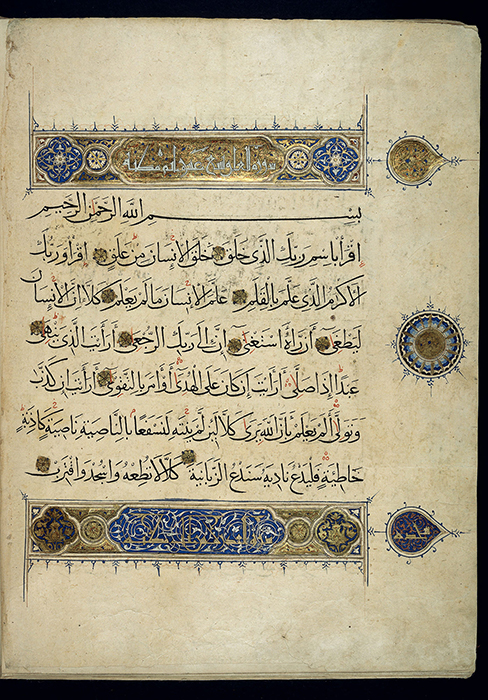 سورة العلق تسع عشر مكية
بسم الله الرحمن الرحيم
اقرأ باسم ربك الذى خلق خلق الإنسان من علق اقرأ وربك
الأكرم الذى علم بالقلم علم الإنسان ما لم يعلم كلا إن الإنسان
ليطغى أن رآه استغنى إن إلى ربك الرجعى أرأيت الذى ينهى
عبدا إذا صلى أرأيت إن كان على الهدى أو أمر بالتقوى أرأيت إن كذب
وتولى ألم يعلم بأن الله يرى كلا لئن لم ينته لنسفعا بالناصية ناصية كاذبة
خاطئة فليدع ناديه سندع الزبانية كلا لا تطعه واسجد واقترب